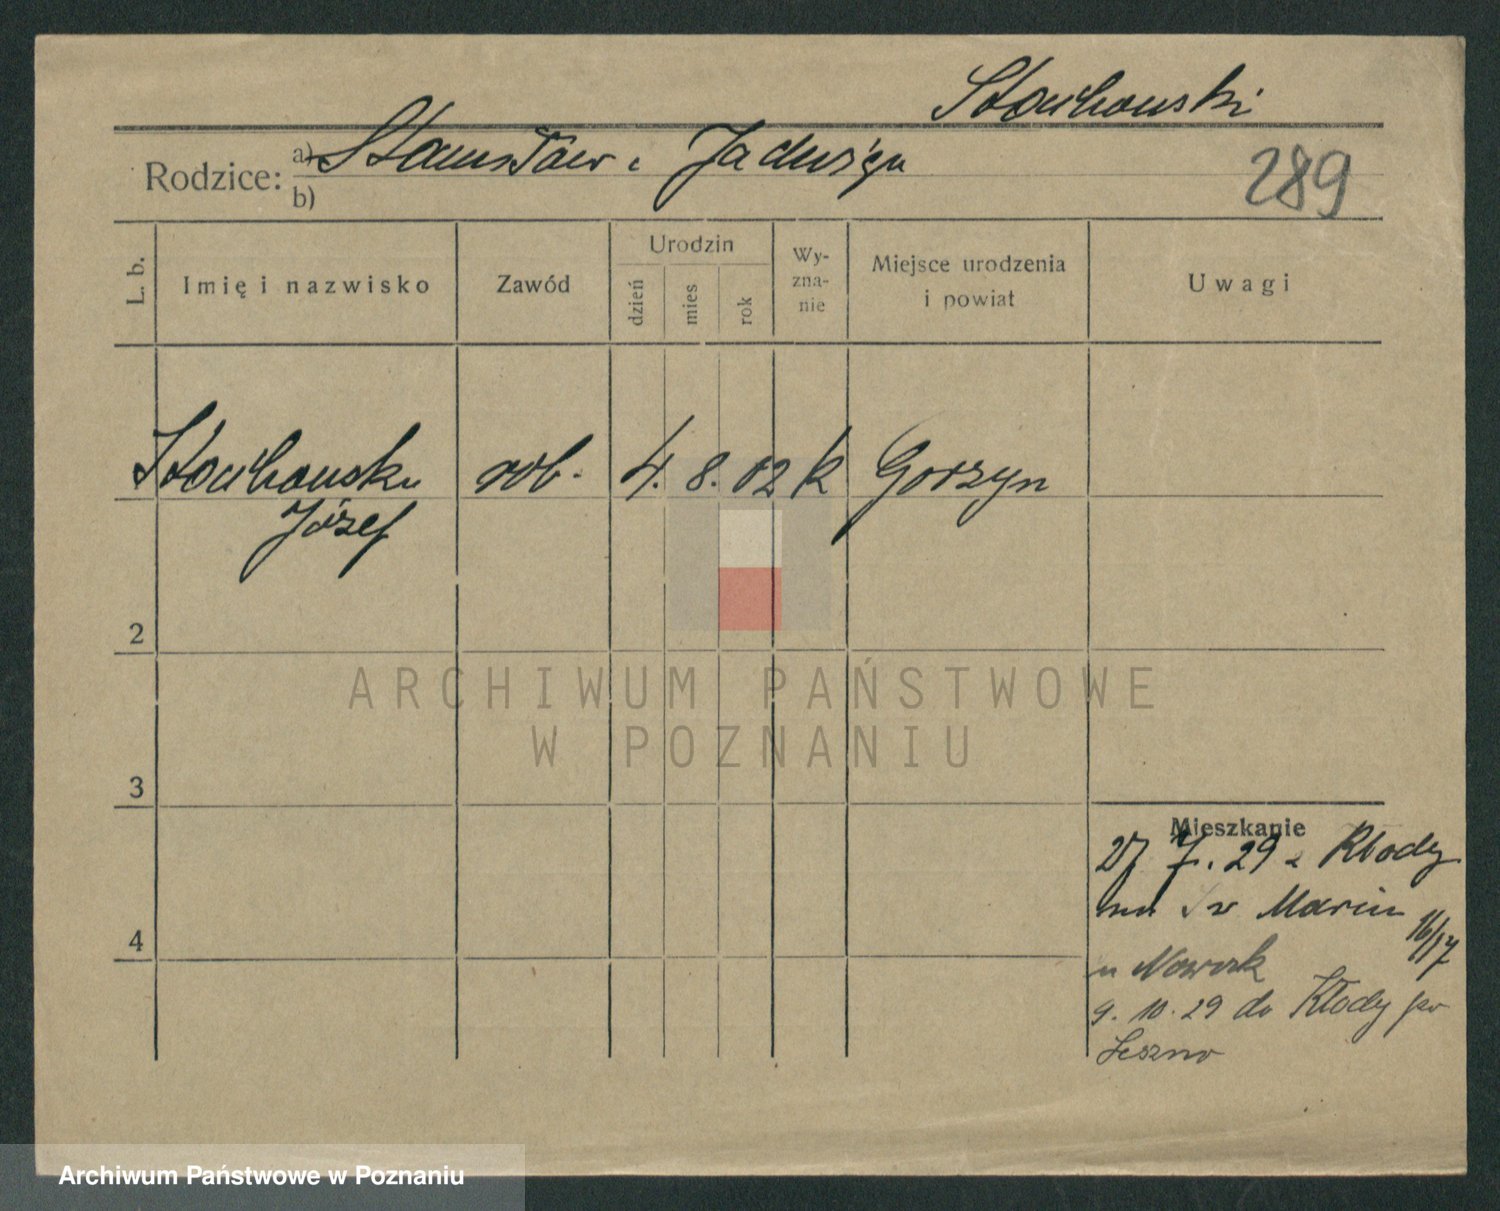 Stachowski
Rodzice: a) Stanisław i Jadwiga
b)
289
L. b.
Imię i nazwisko
Zawód
Urodzin
dzień
mies
rok
Wy-
zna-
nie
Miejsce urodzenia
i powiat
Uwagi
Stachowski rob. 4. 8. 02 k Gorzyn
Józef
2
3
4
Mieszkanie
27 7. 29 z Kłody
na Św Marcin 16/17
u Nowak
9. 10. 29 do Kłody po
Leszno
ARCHIWUM PAŃSTWOWE
W POZNANIU
Archiwum Państwowe w Poznaniu